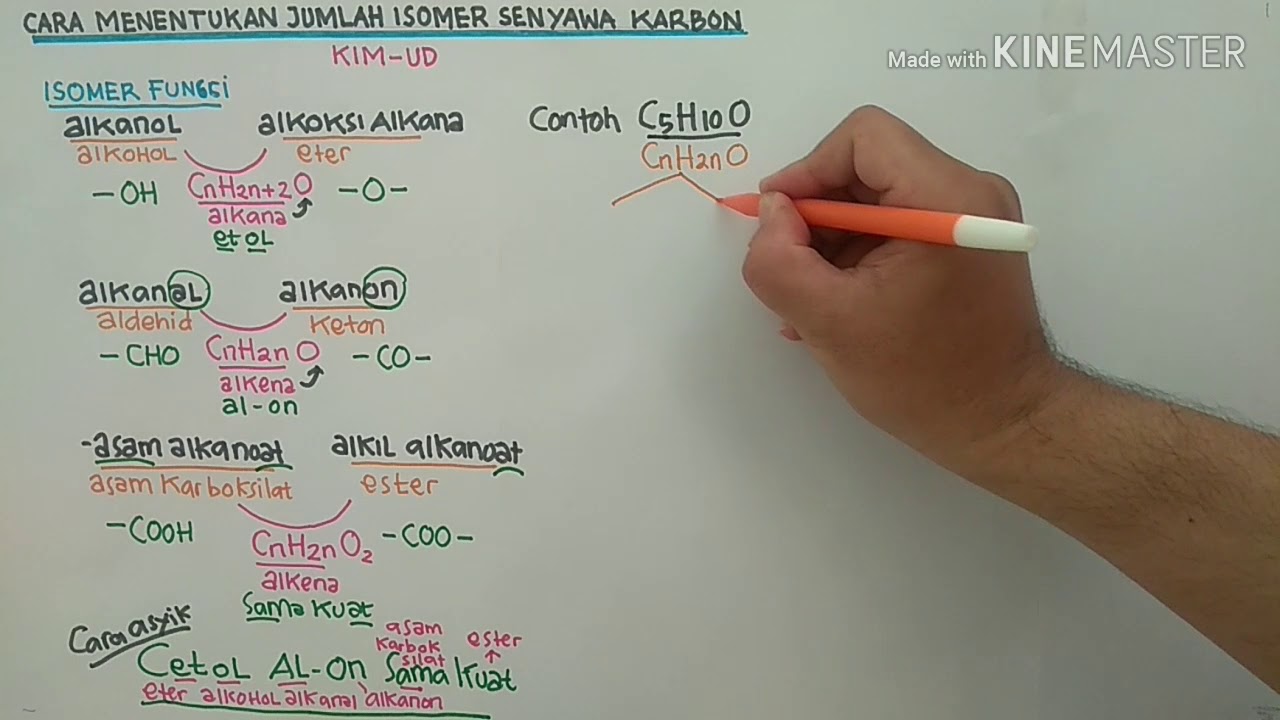 CARA MENENTUKAN JUMLAH ISOMER SENYAWA KARBON
Made with KINEMASTER
KIM-UD
ISOMER FUNGSi
alkanoL alKOKSI AlKana
alKOHOL eter
-OH CnH2n+2O -O-
alkana
etoL
alkanaL alkanon
aldehid Keton
-CHO CnH2nO -CO-
alkena
al-on
-asam alkanoat alKiL alkanoat
asam Karboksilat ester
-COOH CnH2nO2 -COO-
alkena
Sama Kuat
Cara asyik
asam
Karbok
silat
ester
CetoL AL-On Sama Kuat
eter alKOHOL alkanal alkanon
Contoh C5H10O
CnH2nO